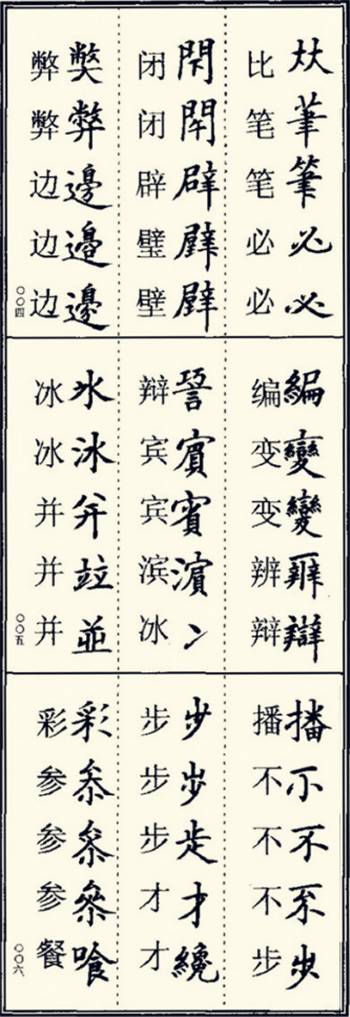 夶茟筆必必
比笔笔必必
閇閇辟璧壁
闭闭辟璧壁
獘弊邊邉邊
弊弊边边边
〇〇四
編變變辨辯
编变变辨辩
賔賓濵冫
辩宾宾滨冰
氷冰并竝並
冰冰并并并
〇〇五
播不不不步
播不不不步
步步步才纔
步步步才才
彩叅叅參喰
彩参参参餐
〇〇六